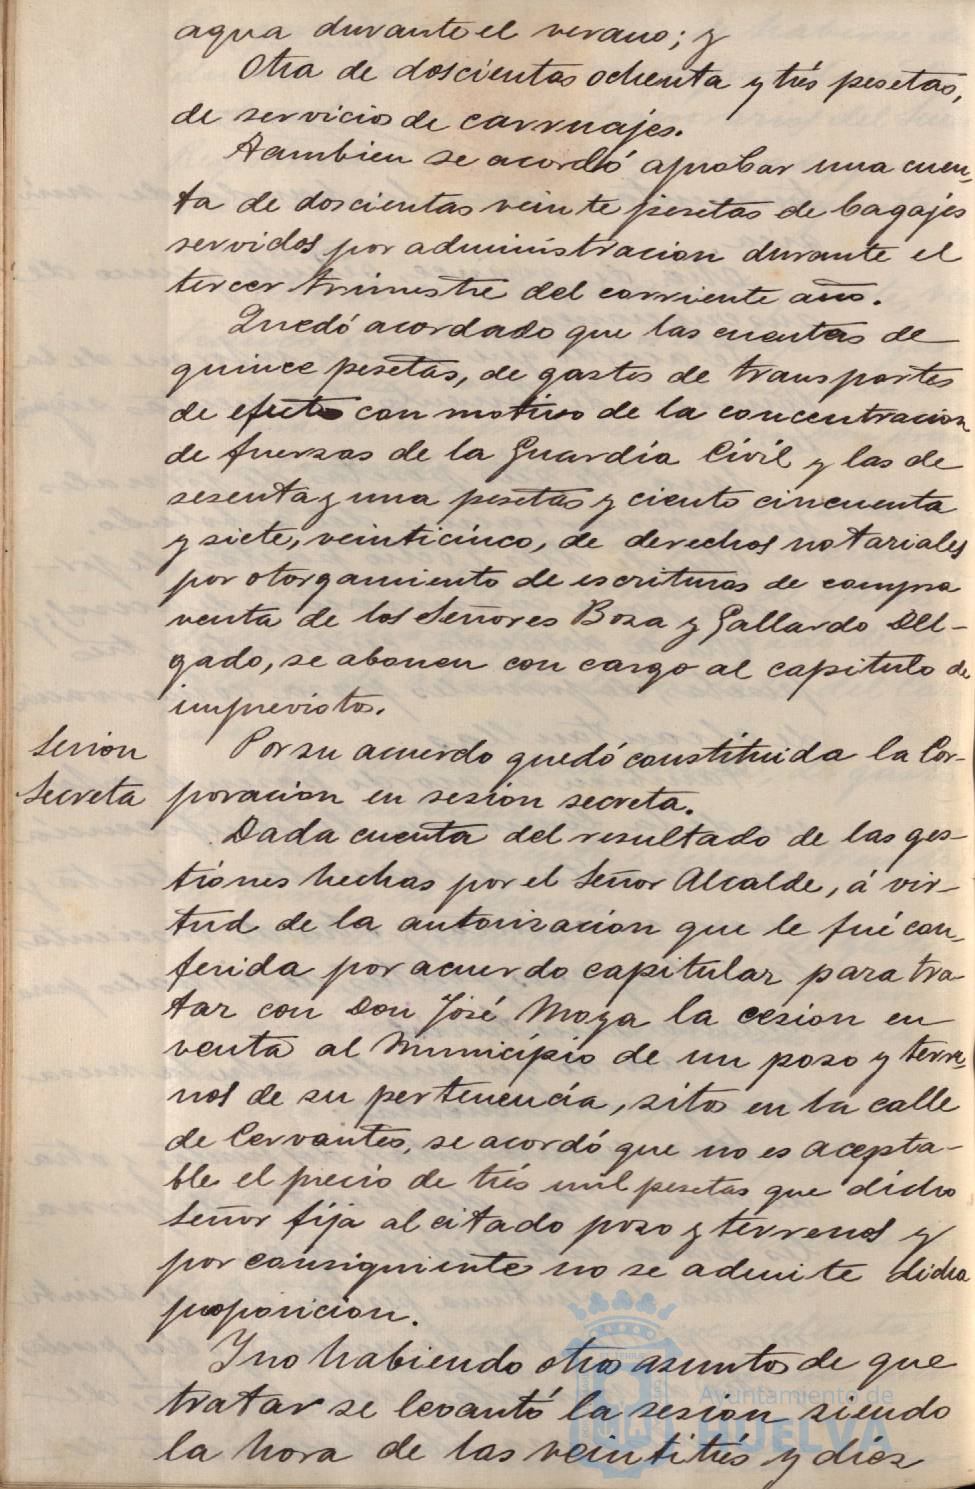 agua durante el verano; y
Otra de doscientas ochenta y trés pesetas,
de servicios de carruajes.
Tambien se acordó aprobar una cuen-
ta de doscientas veinte pesetas de bagajes
servidos por administracion durante el
tercer trimestre del corriente año.
Quedó acordado que las cuentas de
quince pesetas, de gastos de transportes
de efectos con motivo de la concentracion
de fuerzas de la Guardia Civil y las de
sesenta y una pesetas y ciento cincuenta
y siete, veinticinco, de derechos notariales
por otorgamiento de escrituras de compra
venta de los Señores Boza y Gallardo Del-
gado, se abonen con cargo al capitulo de
imprevistos.
Sesion
Secreta
Por su acuerdo quedó constituida la Cor-
poracion en sesion secreta.
Dada cuenta del resultado de las ges-
tiones hechas por el Señor Alcalde, á vir-
tud de la autorizacion que le fué con-
ferida por acuerdo capitular para tra-
tar con Don José Moya la cesion en
venta al Municipio de un pozo y terre-
nos de su pertenencia, sitos en la calle
de Cervantes, se acordó que no es acepta-
ble el precio de trés mil pesetas que dicho
Señor fija al citado pozo y terrenos y
por consiguiente no se admite dicha
proposicion.
Y no habiendo otros asuntos de que
tratar se levantó la sesion siendo
la hora de las veintitrés y diez
Ayuntamiento de
HUELVA